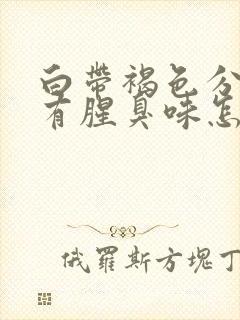 白帶褐色分
有腥臭味怎
俄羅斯方塊丁